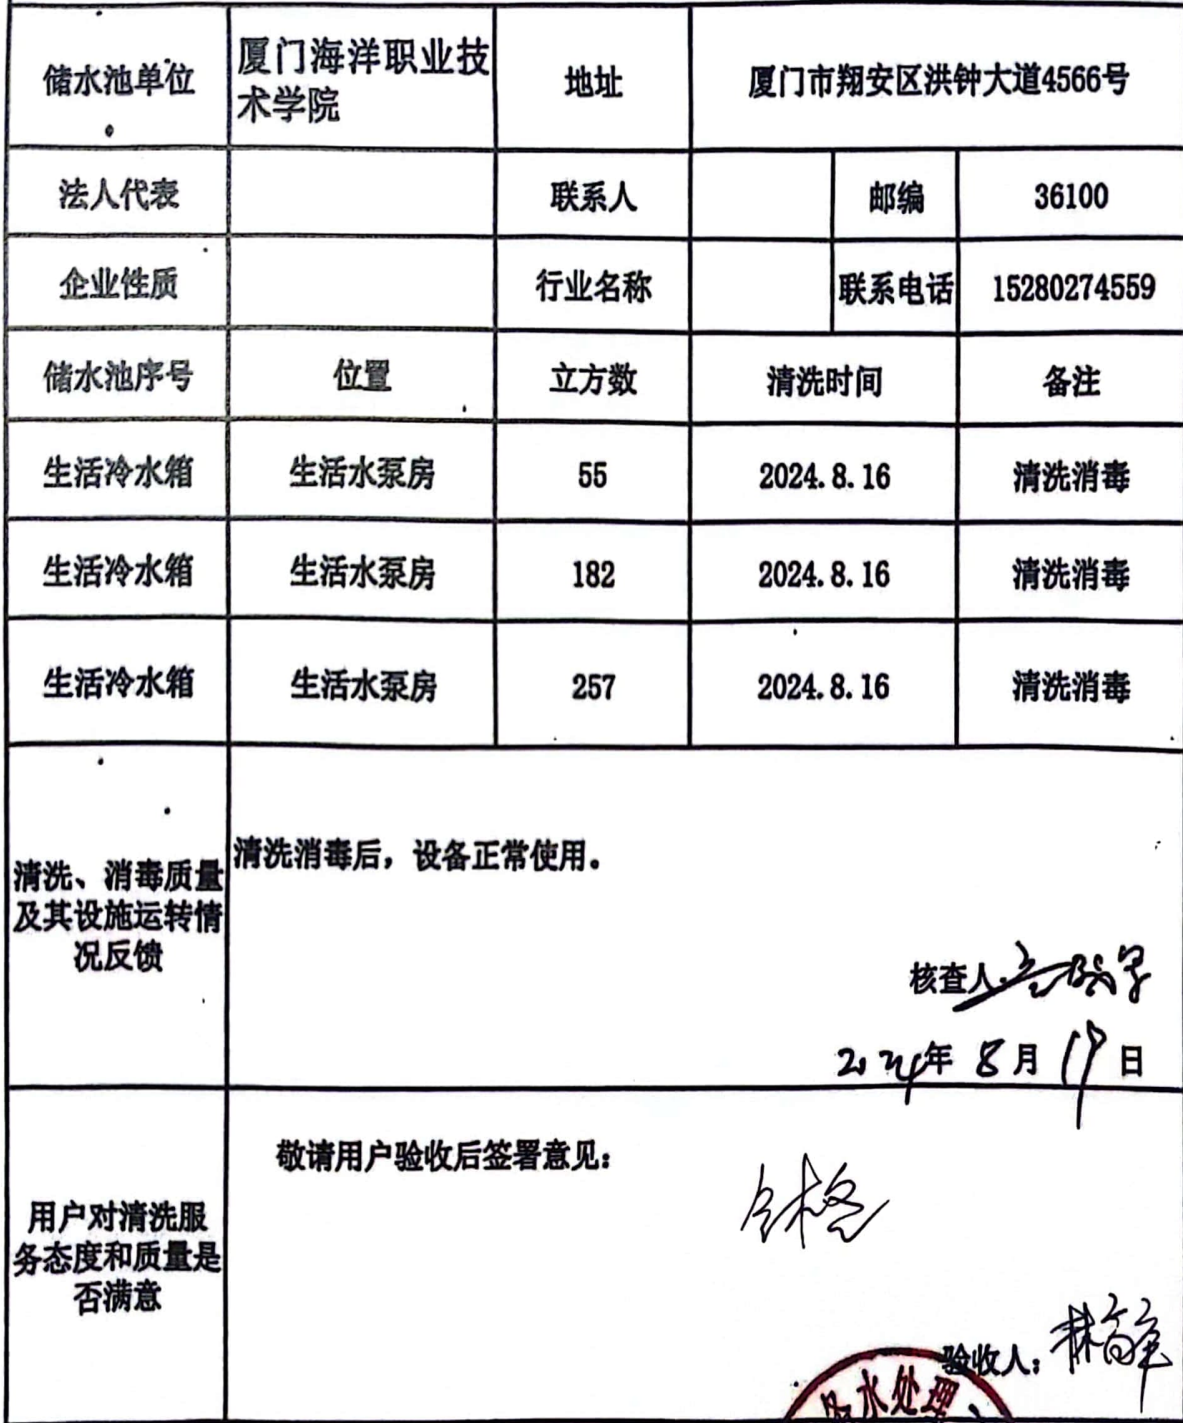 储水池单位 厦门海洋职业技术学院 地址 厦门市翔安区洪钟大道4566号
法人代表 联系人 邮编 36100
企业性质 行业名称 联系电话 15280274559
储水池序号 位置 立方数 清洗时间 备注
生活冷水箱 生活水泵房 55 2024.8.16 清洗消毒
生活冷水箱 生活水泵房 182 2024.8.16 清洗消毒
生活冷水箱 生活水泵房 257 2024.8.16 清洗消毒
清洗、消毒质量
及其设施运转情
况反馈
清洗消毒后，设备正常使用。
核查人
2024年 8月 19日
用户对清洗服
务态度和质量是
否满意
敬请用户验收后签署意见：
合格
验收人：
水处理